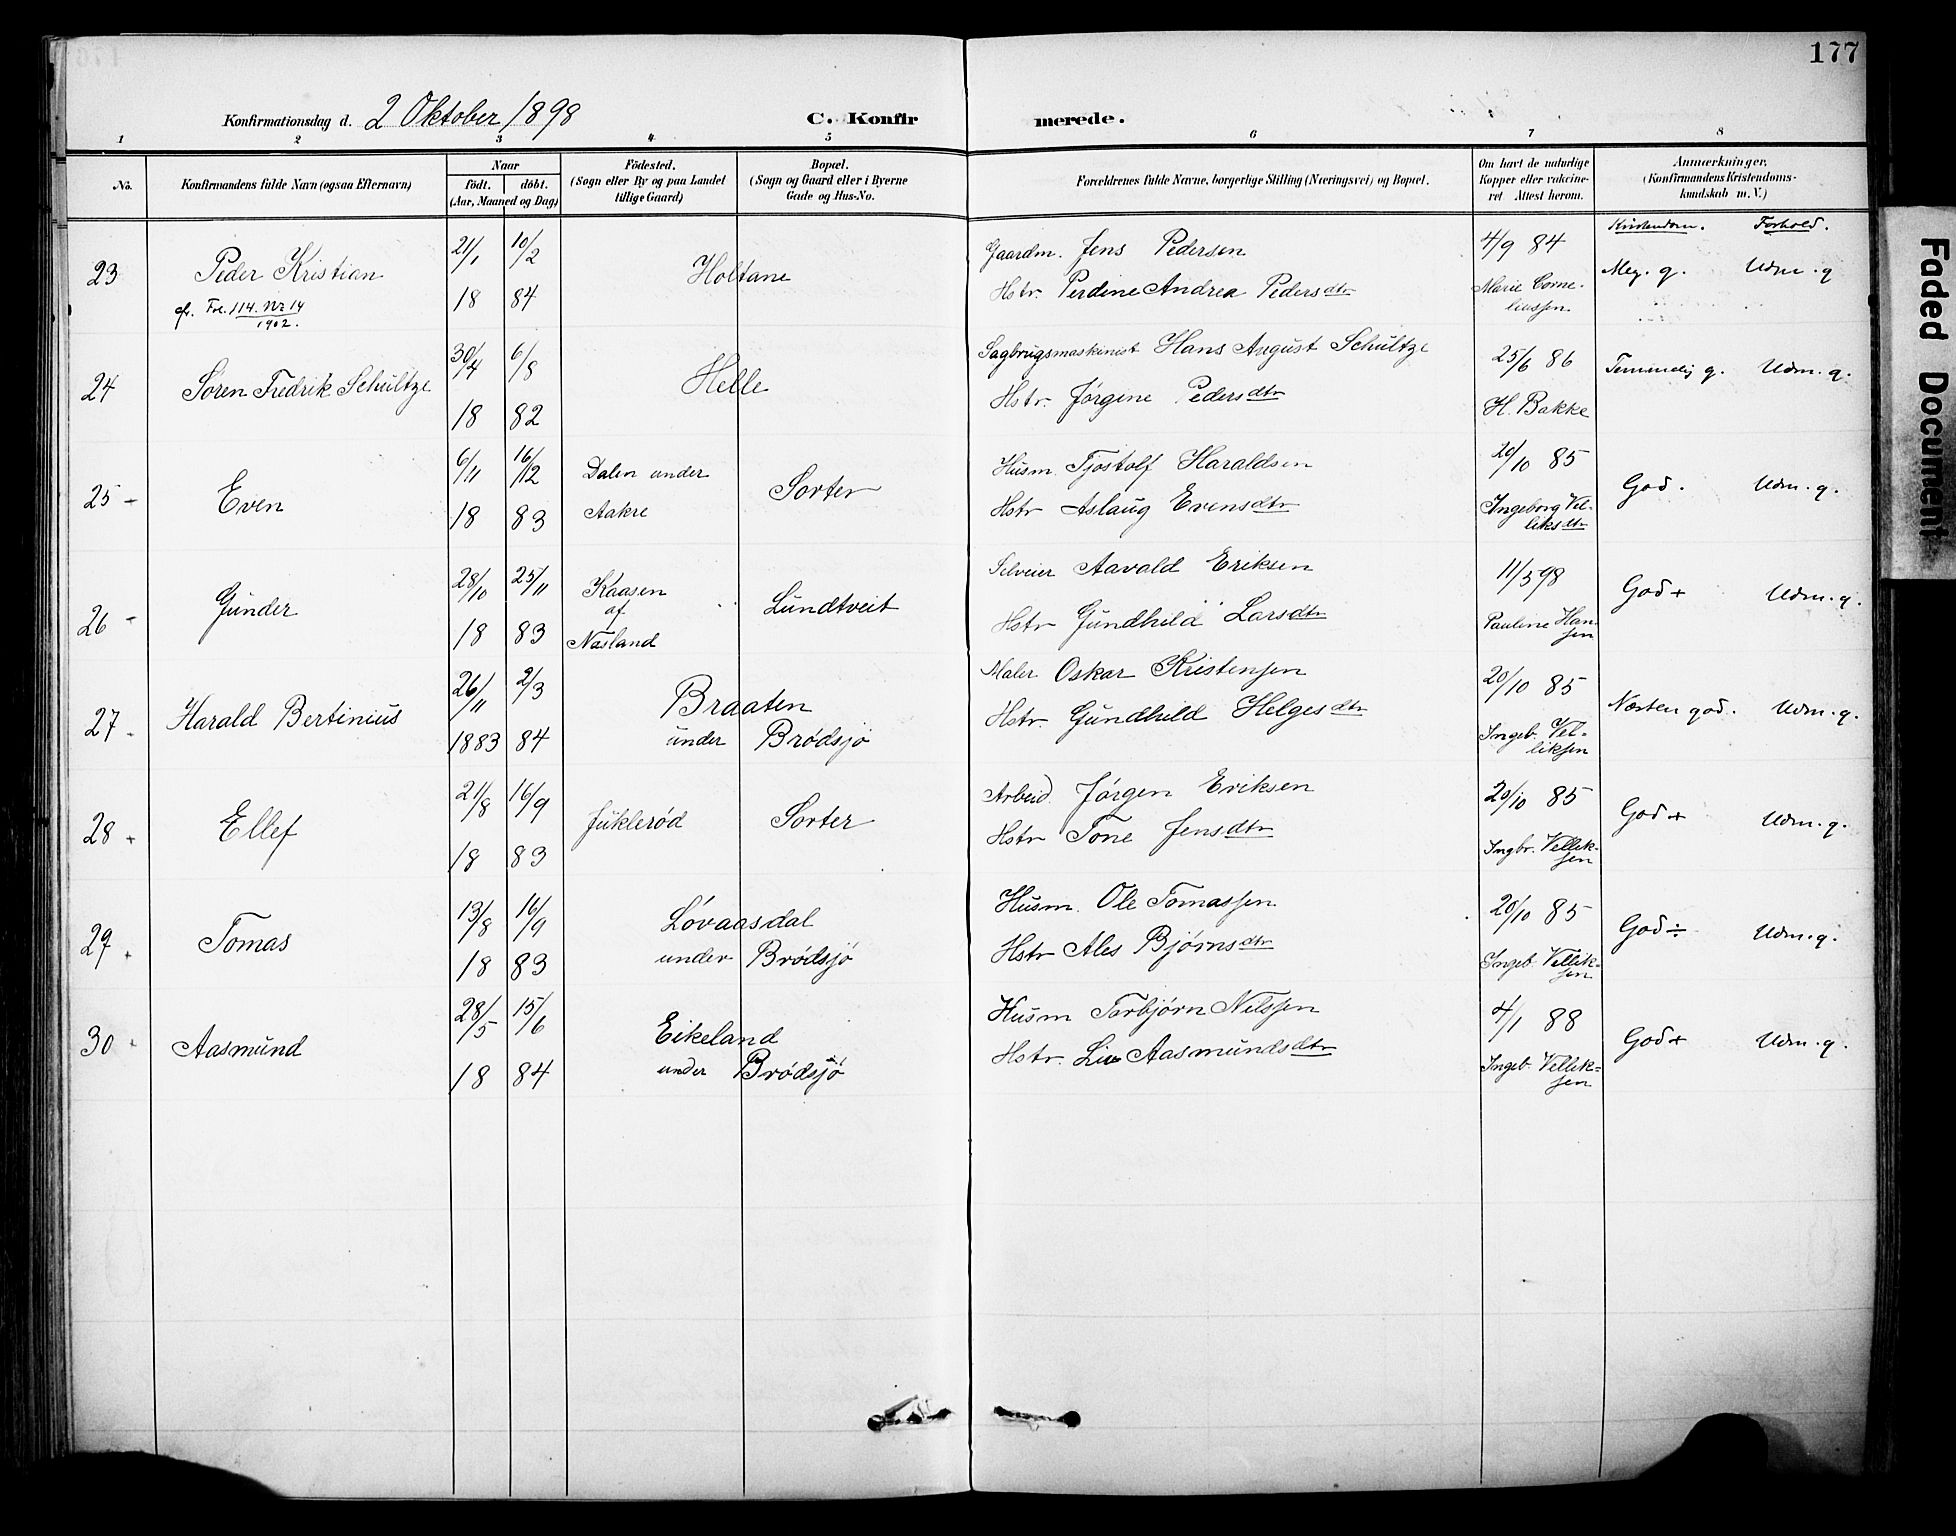 177
Konfirmationsdag d. 2 Oktober 1898
C. Konfirmerede.
1 2 3 4 5 6 7 8
No.
Konfirmandens fulde Navn (ogsaa Efternavn)
Naar
født. døbt.
(Aar, Maaned og Dag)
Fødested.
(Sogn eller By og paa Landet
tillige Gaard)
Bopæl.
(Sogn og Gaard eller i Byerne
Gade og Hus-No.
Forældrenes fulde Navne, borgerlige Stilling (Næringsvei) og Bopæl.
Om havt de naturlige
Kopper eller vakcine-
ret Attest herom.
Anmærkninger,
(Konfirmandens Kristendoms-
kundskab m. V.)
Kristendom. Forhold.
23 Peder Kristian 21/1 10/2 Holtane Gaardm. Jens Pedersen 4/9 84 Meg. g. Udm. g
cfr. Fol. 114. Nr 14
1902.
18 84 Hstr. Perdine Andrea Pedersdtr Marie Corne-
liussen
24 Søren Fredrik Schultze 30/4 6/8 Helle Sagbrugsmaskinist Hans August Schultze 25/6 86 Temmelig g. Udm. g.
18 82 Hstr. Jørgine Pedersdtr H. Bakke
25 - Even 6/11 16/12 Dalen under Sorter Husm. Tjostolf Haraldsen 20/10 85 God. Udm. g.
18 83 Aakre Hstr Aslaug Evensdtr Ingeborg Vel-
liksdtr
26 - Gunder 28/10 25/11 Kaasen Lundtveit Selveier Aavald Eriksen 11/5 98 God + Udm. g.
af
18 83 Nasland Hstr Gundhild Larsdtr Pauline Han-
sen
27 - Harald Bertinius 26/11 2/3 Braaten Maler Oskar Kristensen 20/10 85 Næsten god. Udm. g.
1883 84 under Brødsjø Hstr. Gundhild Helgesdtr Ingeb. Vel-
liksen
28 + Ellef 21/8 16/9 Juklerød Sorter Arbeid. Jørgen Eriksen 20/10 85 God + Udm. g.
18 83 Hstr Tone Jensdtr Ingbr. Vellik-
sen
29 + Tomas 13/8 16/9 Løvaasdal Husm. Ole Tomassen 20/10 85 God ÷ Udm. g.
18 83 under Brødsjø Hstr Ales Bjørnsdtr Ingeb. Vellik-
sen
30 Aasmund 28/5 15/6 Eikeland Husm Torbjørn Nilssen 4/1 88 God + Udm. g.
18 84 under Brødsjø Hstr. Liv Aasmundsdtr Ingeb. Vellik-
sen
Faded Document